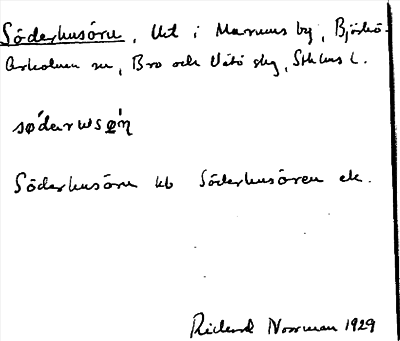 Söderhusörn, Utt i Marums by, Björkö-
Arholma sn, Bro och Vätö skg, Sthlms L.
Söderhusörn kb Söderhusören ek.
Richard Norrman 1929